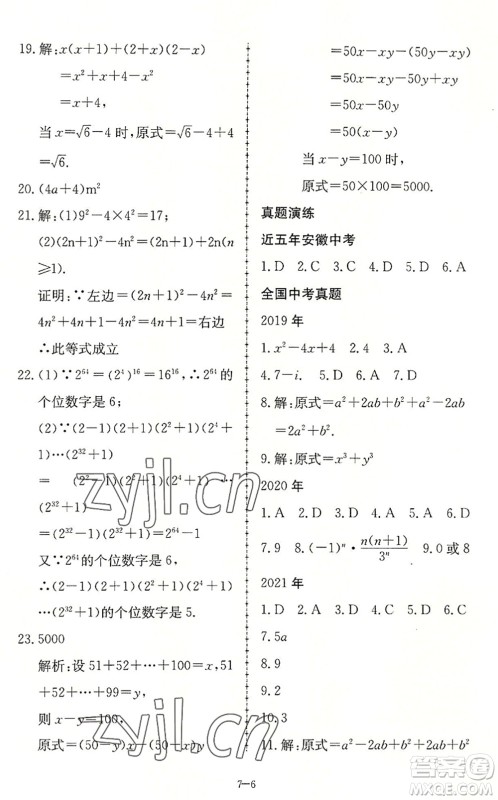 19. 解:x(x+1)+(2+x)(2-x)
=x²+x+4-x²
=x+4,
当 x=√6-4 时,原式=√6-4+4=
√6.
20. (4a+4)m²
21. 解:(1)9²-4×4²=17;
(2)(2n+1)²-4n²=(2n+1)+2n(n
≥1).
证明:∵左边=(2n+1)²-4n²=
4n²+4n+1-4n²=4n+1=右边
∴此等式成立
22. (1)∵2⁶⁴=(2⁴)¹⁶=16¹⁶,∴2⁶⁴的
个位数字是 6;
(2)∵(2-1)(2+1)(2²+1)(2⁴
+1)…(2³²+1)
=(2²-1)(2²+1)(2⁴+1)…
(2³²+1)
=(2³²-1)(2³²+1)=2⁶⁴-1
又∵2⁶⁴的个位数字是 6,
∴(2-1)(2+1)(2²+1)(2⁴+1)…
(2³²+1)的个位数字是 5.
23. 5000
解析:设 51+52+…+100=x,51
+52+…+99=y,
则 x-y=100,
原式=(50-y)x-(50-x)y
=50x-xy-(50y-xy)
=50x-xy-50y+xy
=50x-50y
=50(x-y)
当 x-y=100 时,
原式=50×100=5000.
真题演练
近五年安徽中考
1. D 2. C 3. D 4. D 5. D 6. A
全国中考真题
2019 年
1. x²-4x+4 2. D 3. A
4. 7-i. 5. D 6. D 7. A
8. 解:原式=a²+2ab+b²+a²-2ab
=2a²+b².
9. 解:原式=x³+y³
2020 年
1. D 2. D 3. A 4. C 5. A 6. C
7. 9 8. (-1)ⁿ·n(n+1)/3ⁿ 9. 0 或 8
2021 年
1. D 2. C 3. D 4. C 5. D 6. A
7. 5a
8. 9
9. 2
10. 3
11. 解:原式=a²-2ab+b²+2ab=a²+b²
7-6
zyjl.cn
zyjl.cn
答案圈